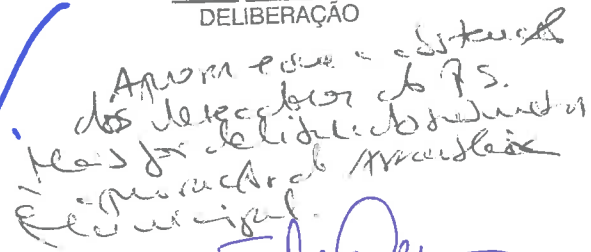 DELIBERAÇÃO
Aprovar com a abstenção
dos vereadores do PS.
Mais foi deliberado submeter
à aprovação da Assembleia
Municipal.